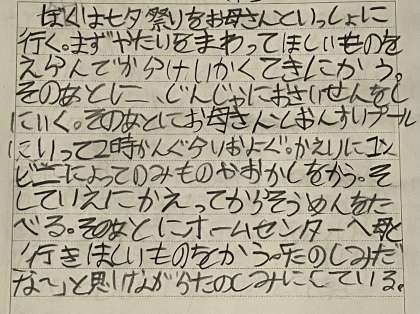 ぼくは七夕祭りをお母さんといっしょに
行く。まずやたいをまわってほしいものを
えらんでからけいかくてきにかう。
そのあとに、じんじゃにおさいせんをし
にいく。そのあとにお母さんとおんすいプール
にいって2時かんぐらいおよぐ。かえりにコン
ビニによってのみものやおかしをかう。そ
していえにかえってからそうめんをた
べる。そのあとにホームセンターへ母と
行きほしいものをかう。たのしみだ
な〜」と思いながらたのしみにしている。